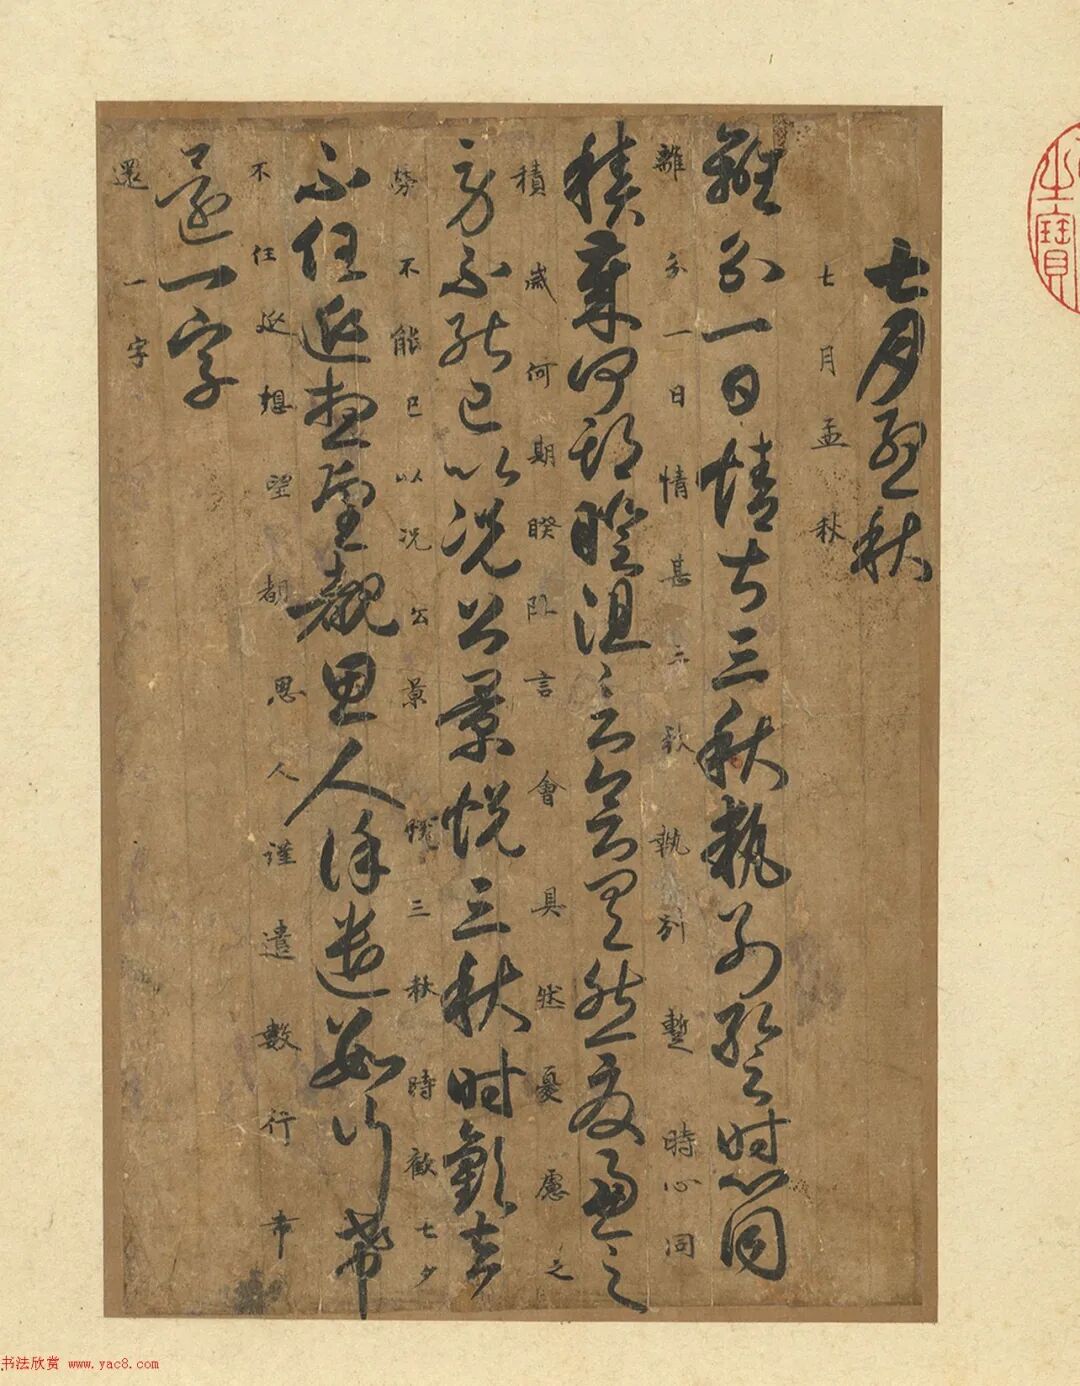 七月孟秋
七月孟秋
離分一日情甚三秋執別暫時心同
離分一日情甚三秋執別暫時心同
積歲何期暌阻言會具然憂慮之
積歲何期暌阻言會具然憂慮之
勞不能已以況公景悦三秋時歡七夕
勞不能已以況公景悦三秋時歡七夕
不任延想望都思人謹遣數行希
不任延想望都思人謹遣數行希
還一字
還一字
之寶
书法欣赏 www.yac8.com